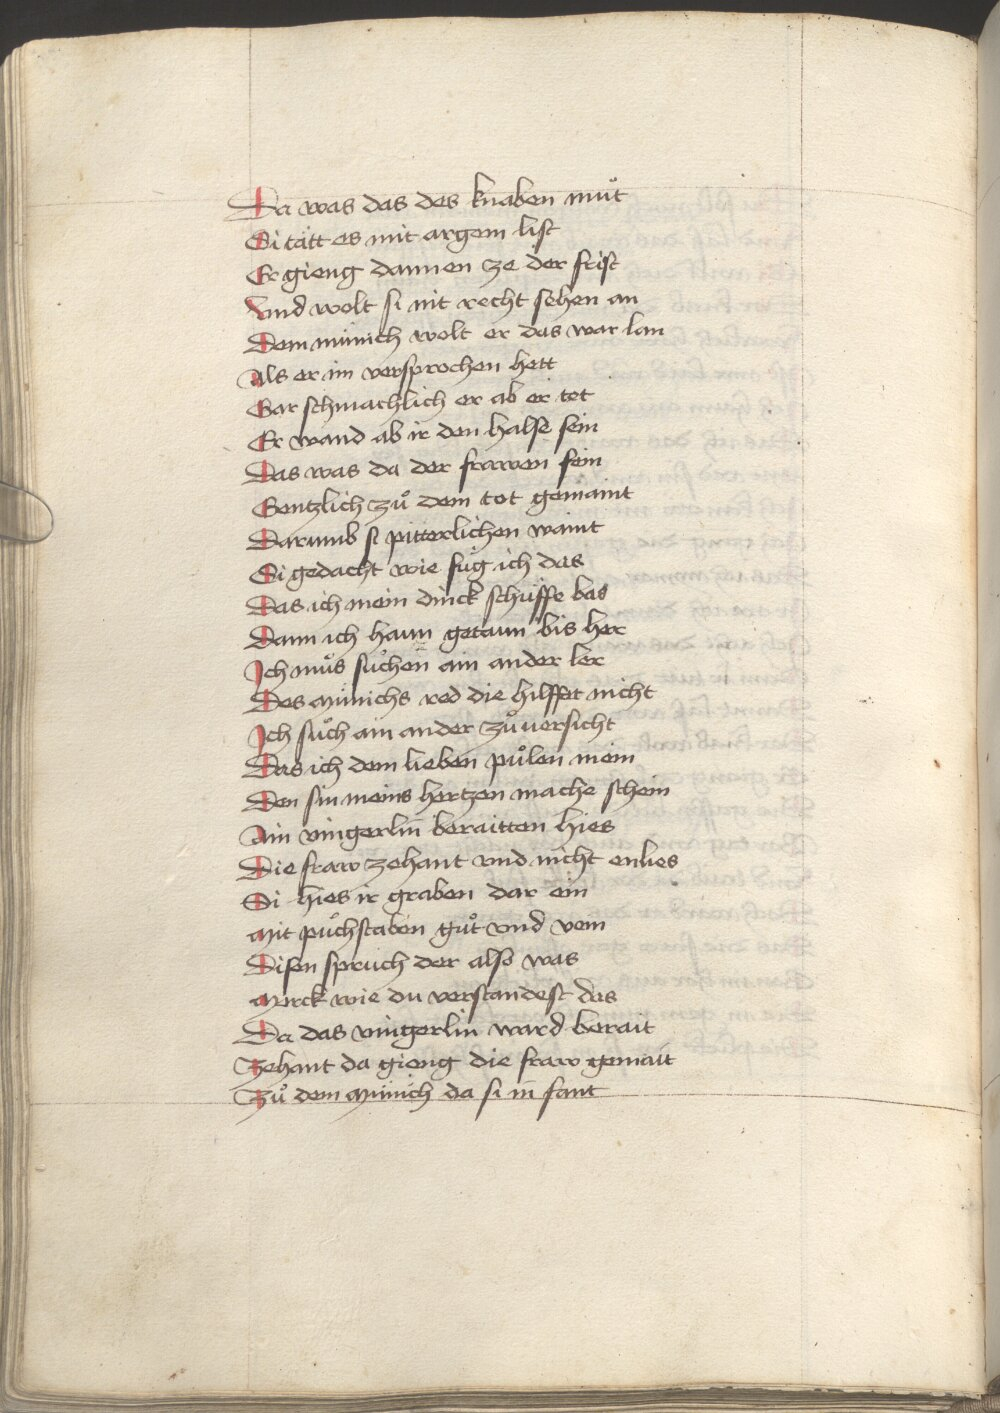 Da was das des knaben muͦt
Si tätt es mit argem list
Er gieng dannen ze der frist
Vnd wolt si nit recht sehen an
Dem münich wolt er das war lan
Als er im versprochen hett
Gar schmachlich er ab er tet
Er wand ab ir den halse sein
Das was da der frawen sein
Gentzlich zuͦ dem tot gemaint
Darumb si pitterlichen waint
Si gedacht wie fuͤg ich das
Das ich mein dinck schüffe bas
Dann ich haun getaun bis her
Ich muͦs suͦchen ain ander ler
Des münichs red die hilffet nicht
Ich suͦch ain ander zuͦversicht
Das ich dem lieben puͦlen mein
Den sin meins hertzen mache schein
Ain vingerlin beraitten hies
Die fraw zehant vnd nicht enlies
Si hies ir graben dar ein
Mit puͦchstaben guͦt vnd vein
Disen spruch der also was
Merck wie du verstandest das
Da das vingerlin ward berait
Zehant da gieng die fraw gemait
Zuͦ dem münich da si in fant